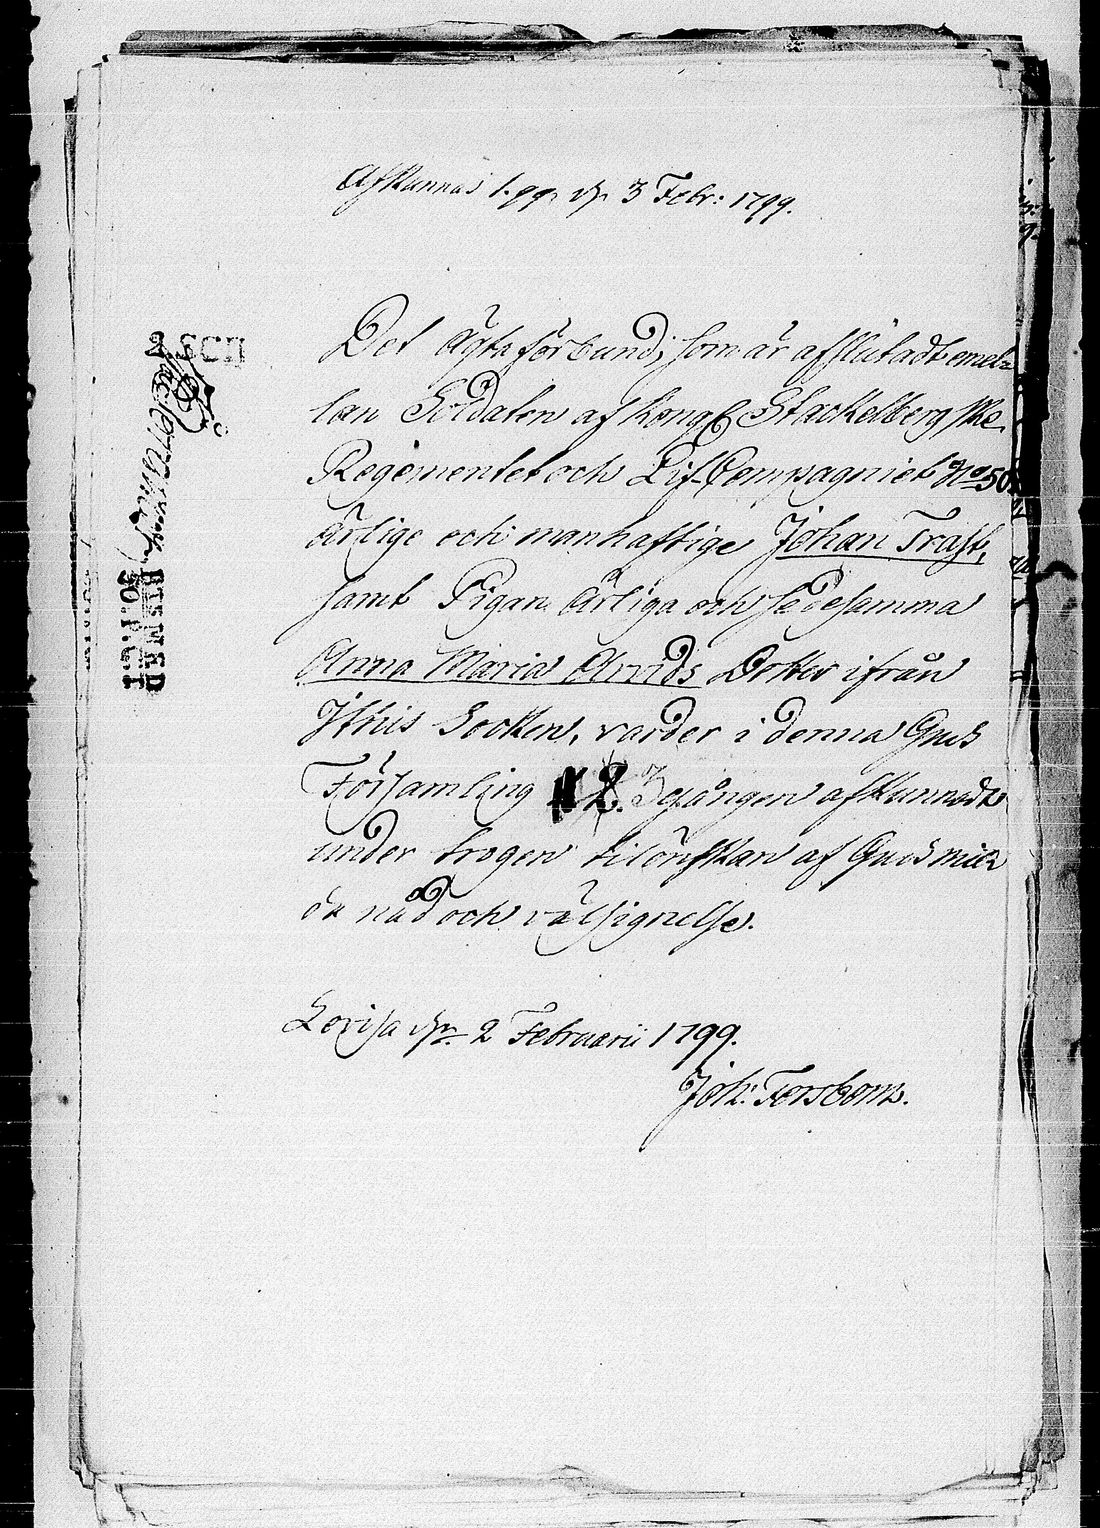 Afkunnas 1. gg. d. 3 Febr: 1799.
Det ägta förbund, som är afslutadt emel=
lan Soldaten af Kongl. Stackelbergske
Regementet och Lif-Compagniet No 50
ärlige och manhaftige Johan Trast,
samt Pigan ärliga och sedesamma
Anna Maria Arvids Dotter ifrån
Ithis Socken, varder i denna Guds
Församling 1 2. 3 gången afkunnadt
under trogen tilönskan af Guds mil=
da nåd och välsignelse.
Lovisa d. 2 Februarii 1799.
Joh: Forsbom.
2 SCH